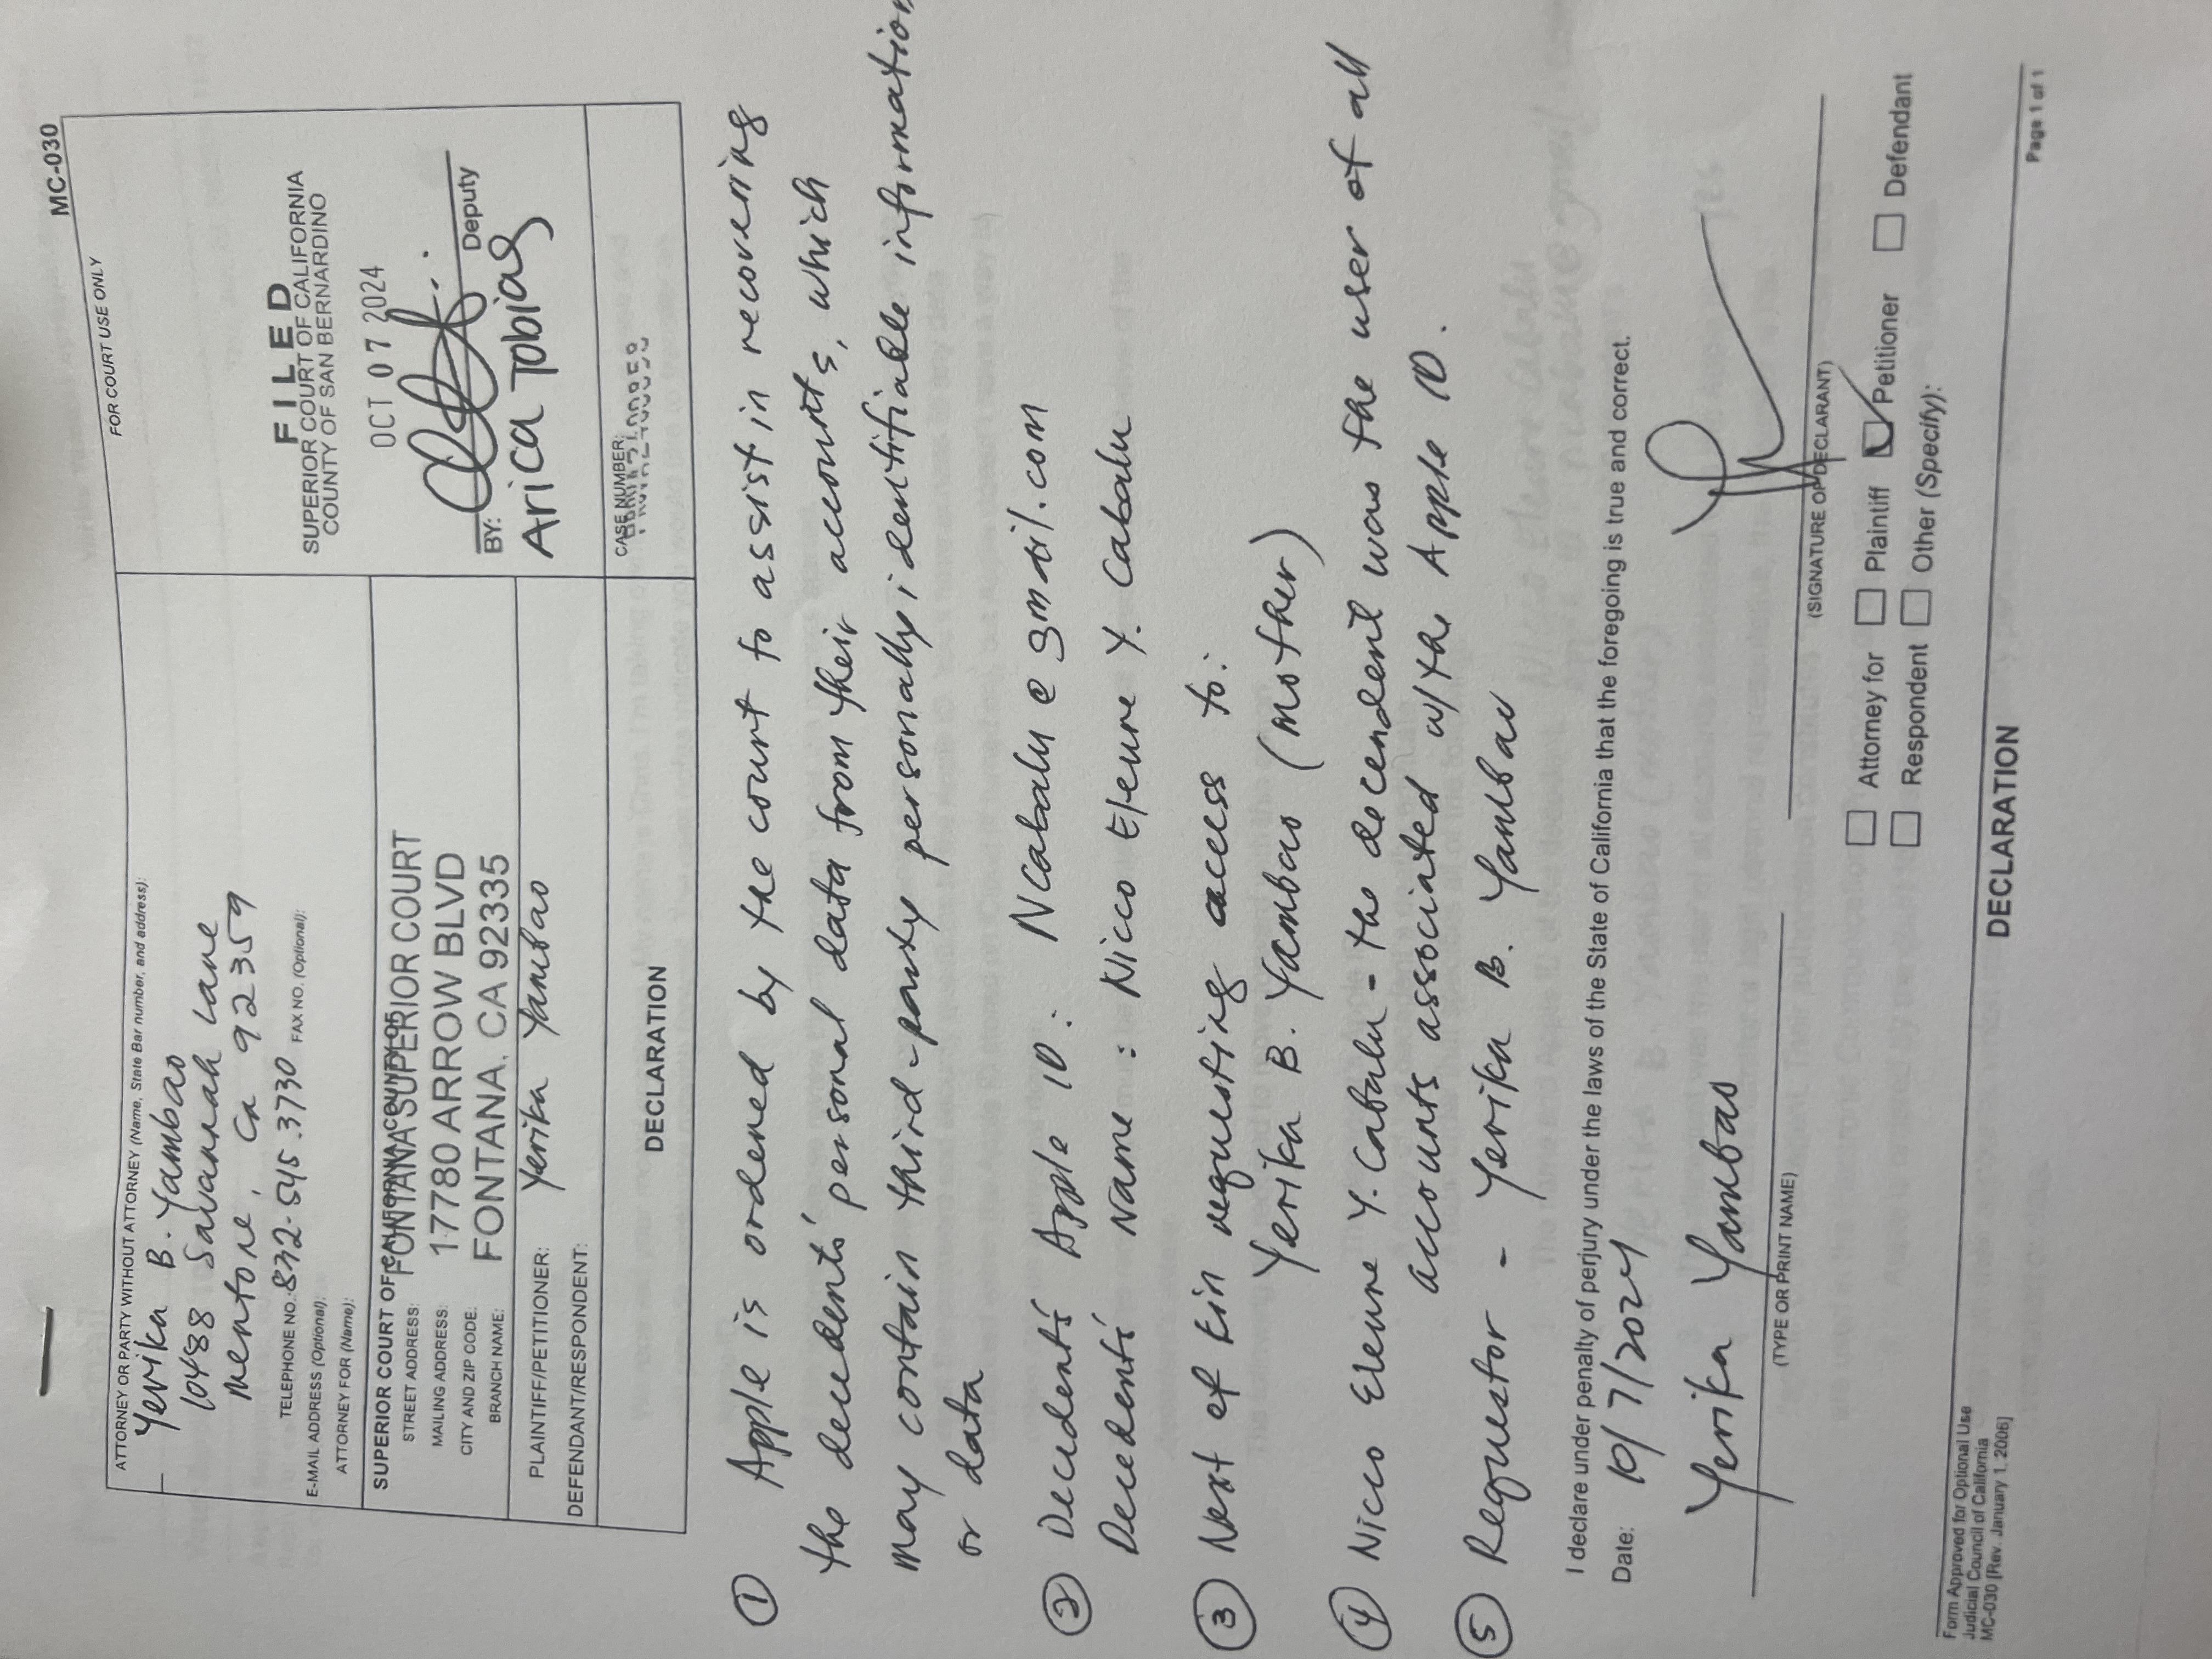 MC-030
ATTORNEY OR PARTY WITHOUT ATTORNEY (Name, State Bar number, and address):
Yerika B. Yambao
10488 Savannah Lane
Mentone, Ca 92359
TELEPHONE NO.: 832-545.3730 FAX NO. (Optional):
E-MAIL ADDRESS (Optional):
ATTORNEY FOR (Name):
FOR COURT USE ONLY
FILED
SUPERIOR COURT OF CALIFORNIA
COUNTY OF SAN BERNARDINO
OCT 07 2024
BY: Deputy
Arica Tobias
SUPERIOR COURT OF CALIFORNIA, COUNTY OF
FONTANA SUPERIOR COURT
STREET ADDRESS: 17780 ARROW BLVD
MAILING ADDRESS:
CITY AND ZIP CODE: FONTANA, CA 92335
BRANCH NAME:
PLAINTIFF/PETITIONER: Yerika Yambao
DEFENDANT/RESPONDENT:
DECLARATION
CASE NUMBER:
① Apple is ordered by the court to assist in recovering
the decedents' personal data from their accounts, which
may contain third-party personally identifiable information
or data
② Decedent's Apple ID: Ncabalu@gmail.com
Decedent's Name: Nicco Eleure Y. Cabalu
③ Next of kin requesting access to:
Yerika B. Yambao (mother)
④ Nicco Eleure Y. Cabalu - the decendent was the user of all
accounts associated w/the Apple ID.
⑤ Requestor - Yerika B. Yambao
I declare under penalty of perjury under the laws of the State of California that the foregoing is true and correct.
Date: 10/7/2024
Yerika Yambao
(TYPE OR PRINT NAME)
(SIGNATURE OF DECLARANT)
Attorney for Plaintiff Petitioner Defendant
Respondent Other (Specify):
Form Approved for Optional Use
Judicial Council of California
MC-030 [Rev. January 1, 2006]
DECLARATION
Page 1 of 1